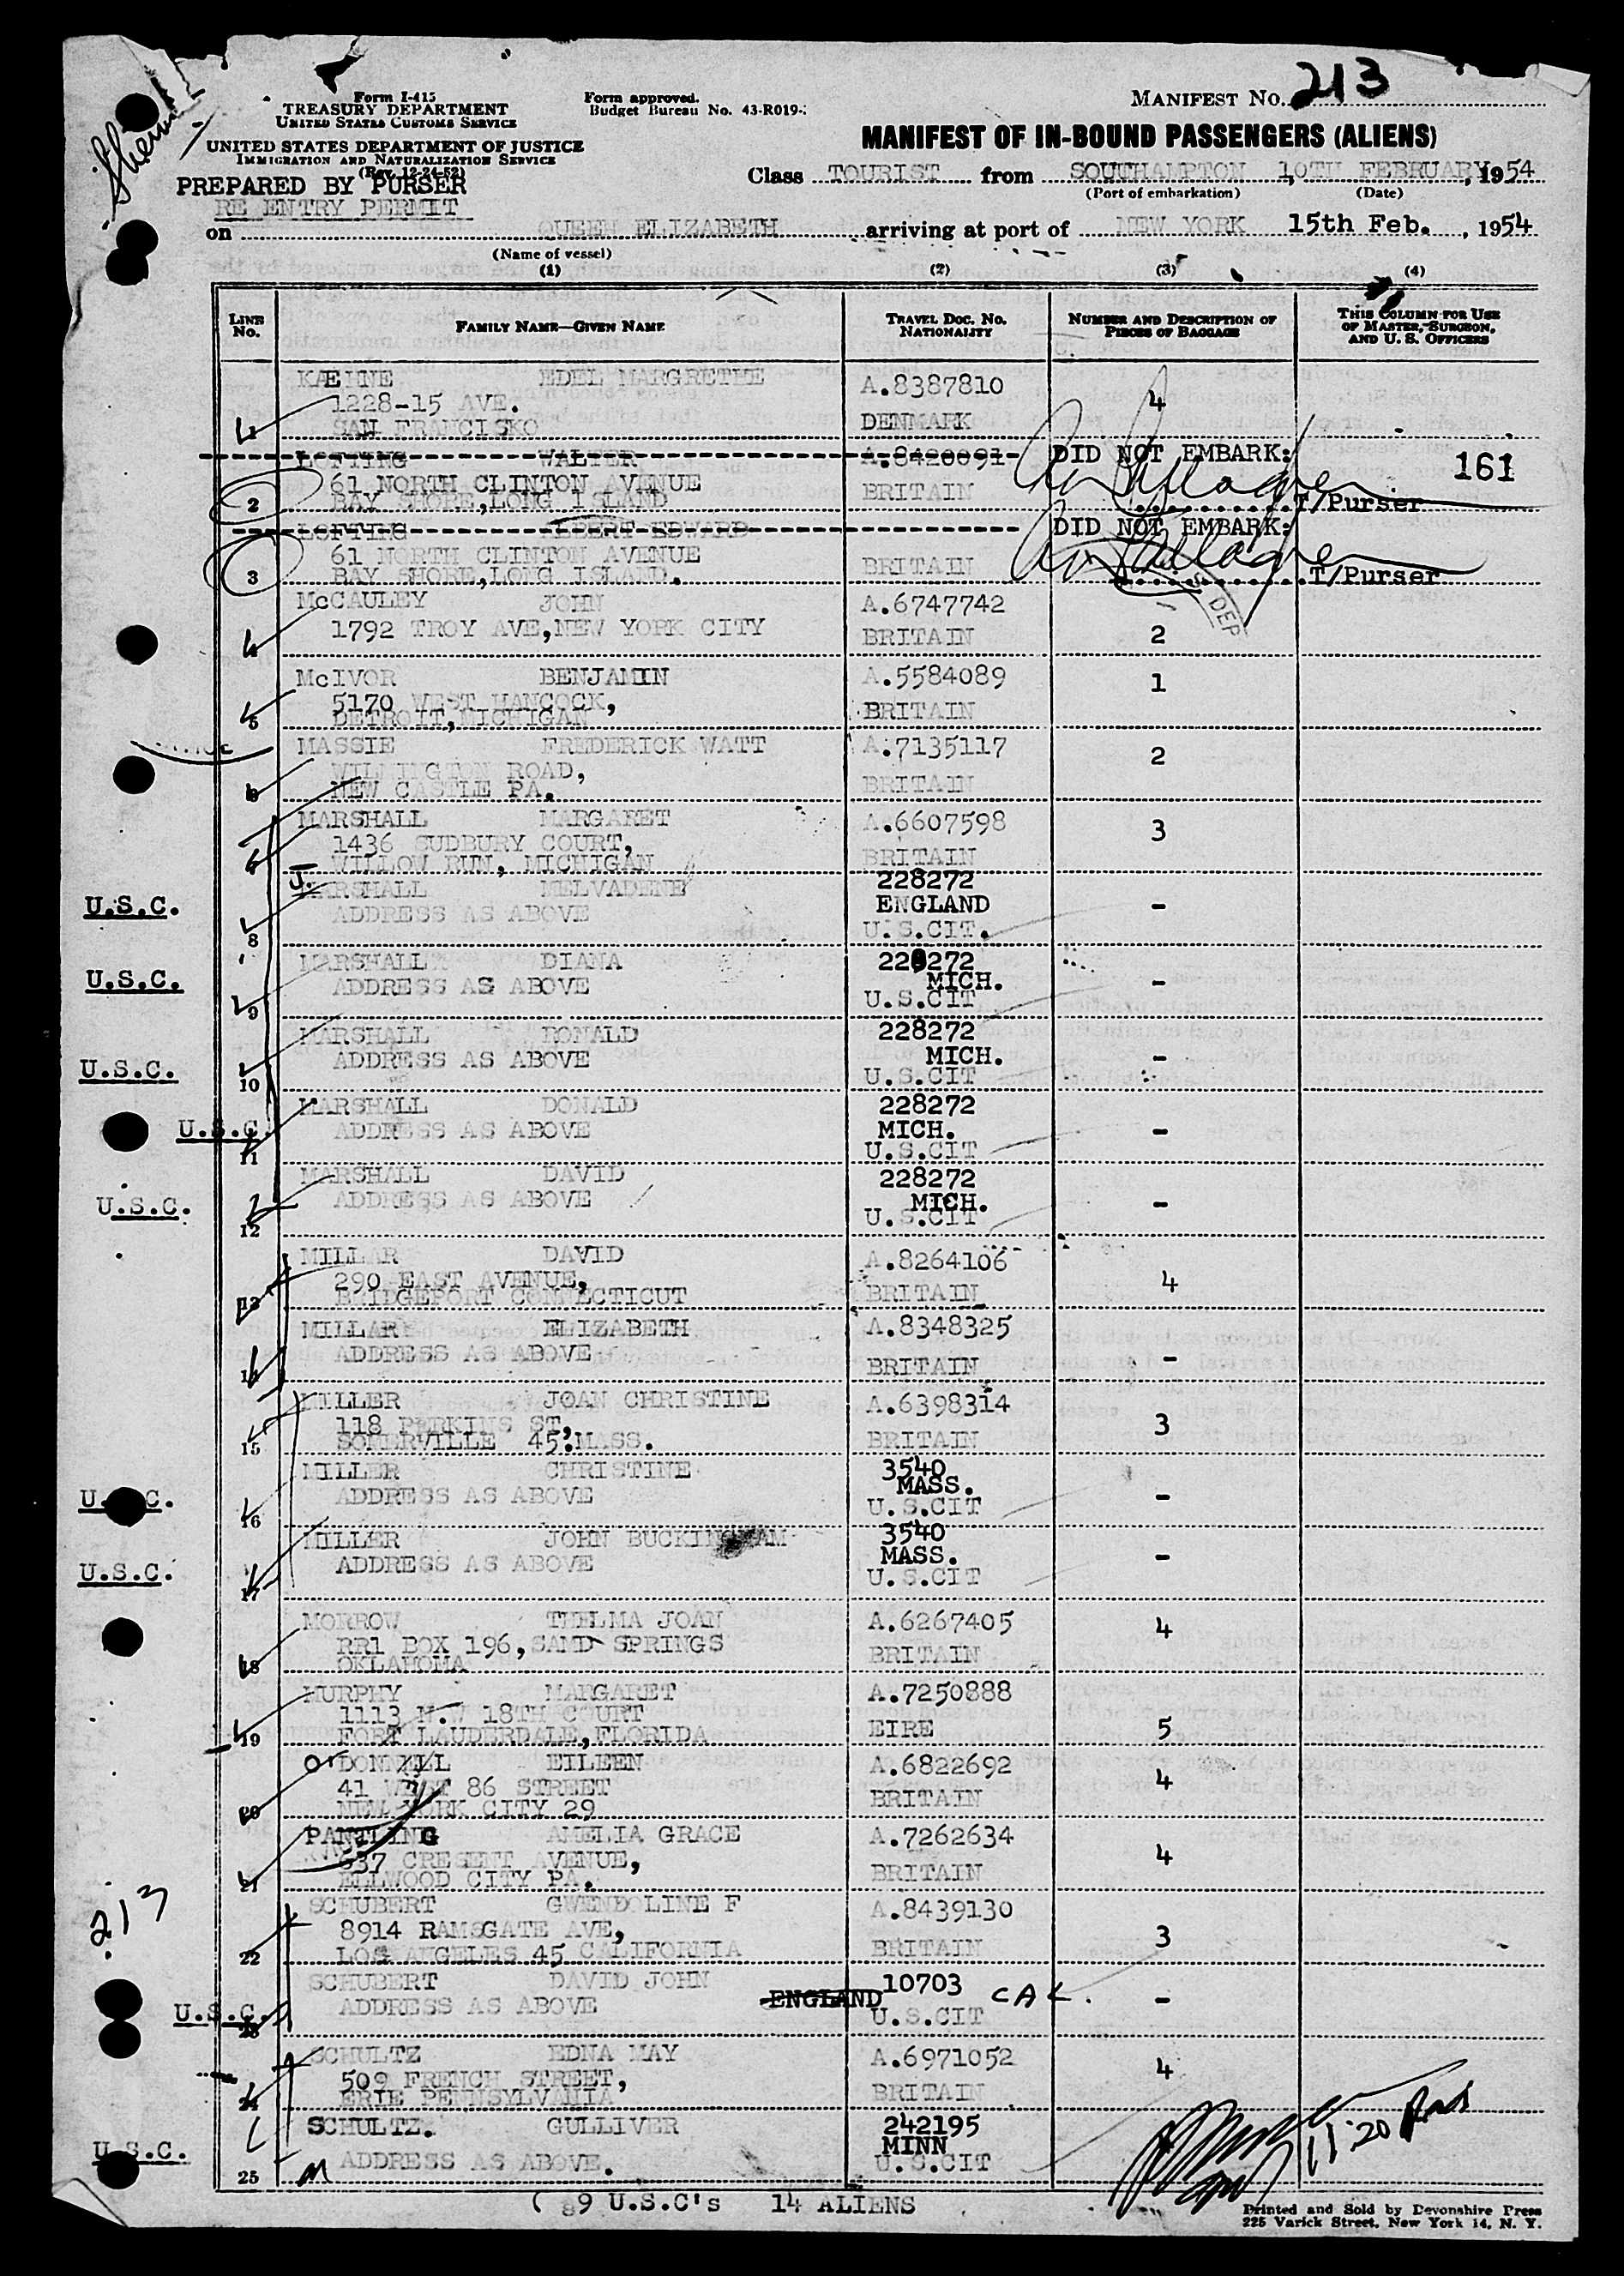 Form I-415
TREASURY DEPARTMENT
UNITED STATES CUSTOMS SERVICE
UNITED STATES DEPARTMENT OF JUSTICE
IMMIGRATION AND NATURALIZATION SERVICE
(Rev. 12-24-52)
PREPARED BY PURSER
RE ENTRY PERMIT
Form approved.
Budget Bureau No. 43-R019-
MANIFEST No. 213
MANIFEST OF IN-BOUND PASSENGERS (ALIENS)
Class TOURIST from SOUTHAMPTON 10TH FEBRUARY, 1954
(Port of embarkation) (Date)
on QUEEN ELIZABETH arriving at port of NEW YORK 15th Feb. , 1954
(Name of vessel)
(1) (2) (3) (4)
LINE No. FAMILY NAME—GIVEN NAME TRAVEL DOC. NO. NATIONALITY NUMBER AND DESCRIPTION OF PIECES OF BAGGAGE THIS COLUMN FOR USE OF MASTER, SURGEON, AND U. S. OFFICERS
KAEHNE EDEL MARGRETHE A.8387810
1228-15 AVE. 4
1 SAN FRANCISKO DENMARK
LOFTING WALTER A.8420091 DID NOT EMBARK: 161
61 NORTH CLINTON AVENUE
2 BAY SHORE,LONG ISLAND BRITAIN T/Purser
LOFTING ALBERT EDWARD DID NOT EMBARK:
61 NORTH CLINTON AVENUE
3 BAY SHORE,LONG ISLAND. BRITAIN T/Purser
McCAULEY JOHN A.6747742
4 1792 TROY AVE,NEW YORK CITY BRITAIN 2
McIVOR BENJAMIN A.5584089 1
5170 WEST HANCOCK,
5 DETROIT,MICHIGAN BRITAIN
MASSIE FREDERICK WATT A.7135117 2
WILMINGTON ROAD,
6 NEW CASTLE PA. BRITAIN
MARSHALL MARGARET A.6607598 3
1436 SUDBURY COURT,
WILLOW RUN, MICHIGAN BRITAIN
J. MARSHALL MELVADENE 228272
U.S.C. ADDRESS AS ABOVE ENGLAND -
8 U.S.CIT.
MARSHALL DIANA 228272
U.S.C. ADDRESS AS ABOVE MICH. -
9 U.S.CIT
MARSHALL RONALD 228272
U.S.C. ADDRESS AS ABOVE MICH. -
10 U.S.CIT
MARSHALL DONALD 228272
U.S.C. ADDRESS AS ABOVE MICH. -
11 U.S.CIT
MARSHALL DAVID 228272
U.S.C. ADDRESS AS ABOVE MICH. -
12 U.S.CIT
MILLAR DAVID A.8264106
290 EAST AVENUE, 4
13 BRIDGEPORT CONNECTICUT BRITAIN
MILLAR ELIZABETH A.8348325
14 ADDRESS AS ABOVE BRITAIN -
MILLER JOAN CHRISTINE A.6398314
118 PERKINS ST, 3
15 SOMERVILLE 45.MASS. BRITAIN
MILLER CHRISTINE 3540
U.S.C. ADDRESS AS ABOVE MASS. -
16 U.S.CIT
MILLER JOHN BUCKINGHAM 3540
U.S.C. ADDRESS AS ABOVE MASS. -
17 U.S.CIT
MORROW THELMA JOAN A.6267405 4
RR1 BOX 196,SAND SPRINGS
18 OKLAHOMA BRITAIN
MURPHY MARGARET A.7250888
1113 N.W 18TH COURT
19 FORT LAUDERDALE,FLORIDA EIRE 5
O'DONNELL EILEEN A.6822692
41 WEST 86 STREET 4
20 NEW YORK CITY 29 BRITAIN
PANTLING AMELIA GRACE A.7262634
637 CRESENT AVENUE, 4
21 ELLWOOD CITY PA. BRITAIN
SCHUBERT GWENDOLINE F A.8439130
213 8914 RAMSGATE AVE, 3
22 LOS ANGELES 45 CALIFORNIA BRITAIN
SCHUBERT DAVID JOHN 10703 CAL.
U.S.C. ADDRESS AS ABOVE ENGLAND -
23 U.S.CIT
SCHULTZ EDNA MAY A.6971052 4
509 FRENCH STREET,
24 ERIE PENNSYLVANIA BRITAIN
SCHULTZ. GULLIVER 242195
U.S.C. MINN
25 M ADDRESS AS ABOVE. U.S.CIT
11.20
( 89 U.S.C's 14 ALIENS
Printed and Sold by Devonshire Press
225 Varick Street, New York 14, N. Y.